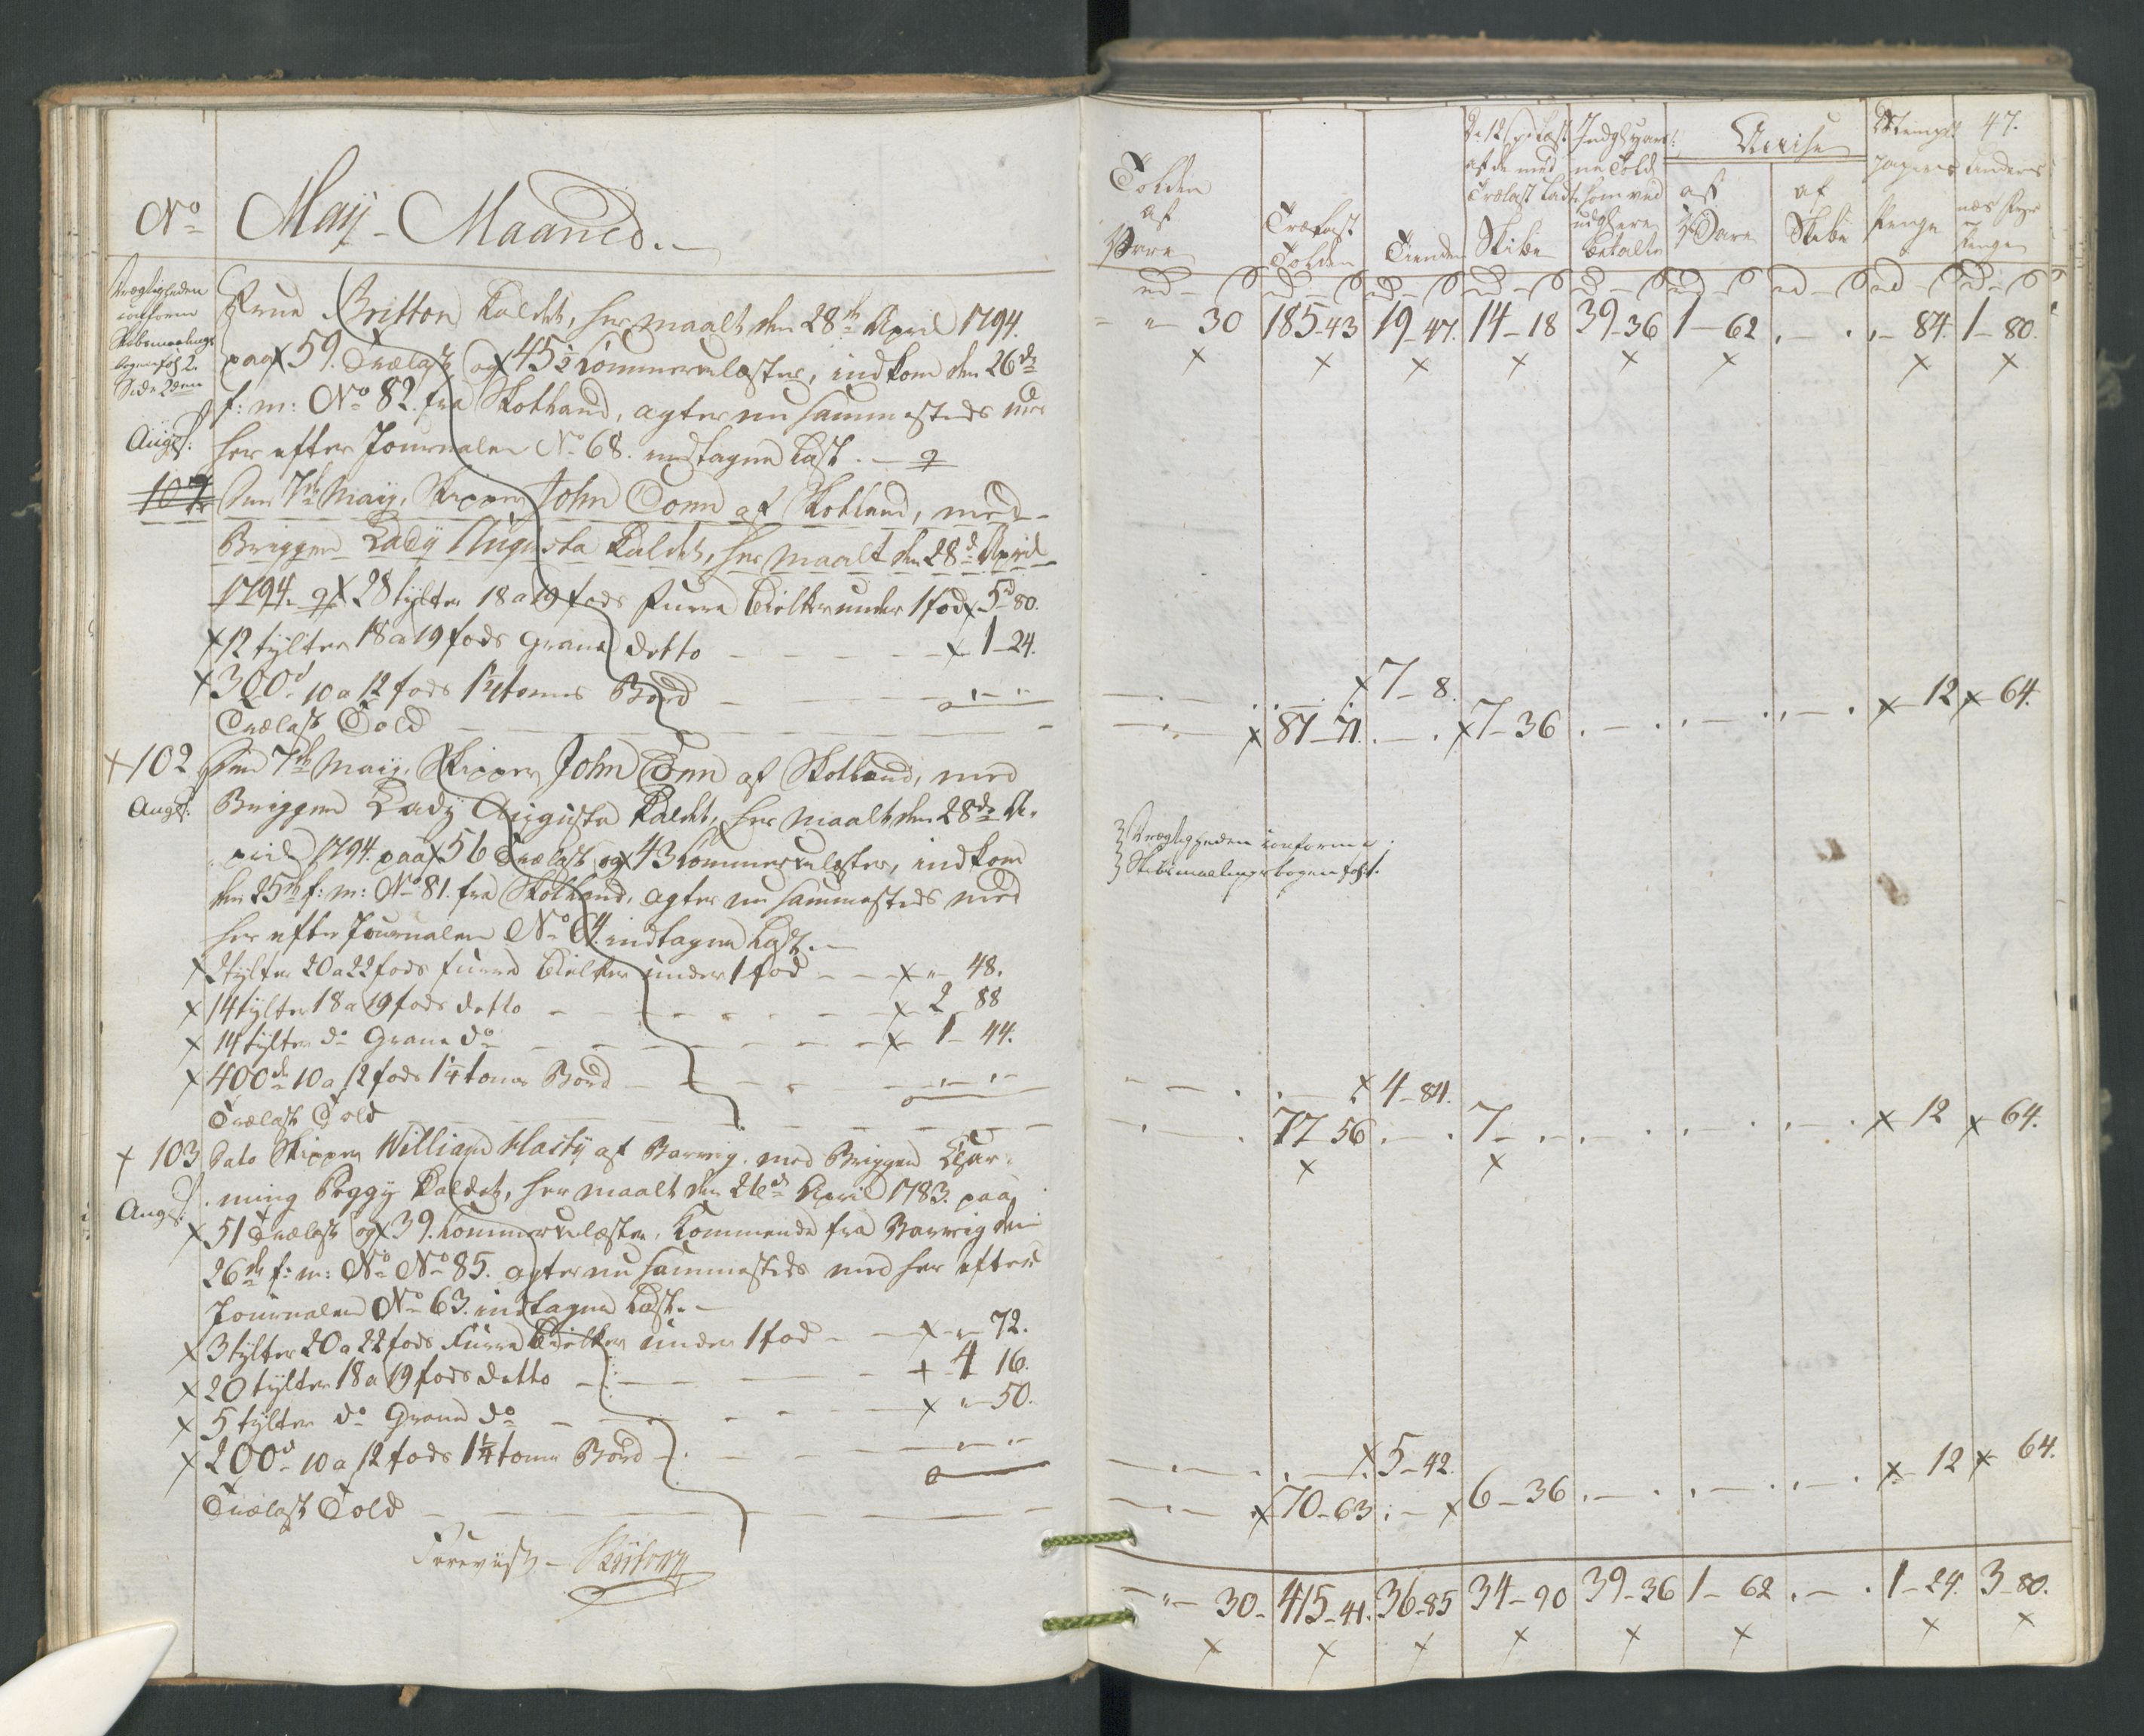 No
Maij - Maaned.
Drægtigheden
conform
Skibsmaalings
bogen fol: 2.
Side 2den
Prue Britton kaldet, her maalt den 28de April 1794.
paa 59. Trælæst og 45½ Commercelæster, indkom den 26de
f: m: No 82. fra Skotland, agter nu sammesteds med
Angl:
her efter Journalen No 68. indtagne Last.
107
Den 7de Maij, Skipper John Conn af Skotland, med
Briggen Lady Augusta kaldet, her maalt den 28de April
1794.
28 tylter 18 a 19 fods furre Bielker under 1 fod 5-80.
12 tylter 18 a 19 fods Grane detto 1-24.
300d 10 a 12 fods 1¼ tomes Bord
Trælast Told
102
Den 7de Maij, Skipper John Conn af Skotland, med
Angl:
Briggen Lady Augusta kaldet, her maalt den 28de A-
pril 1794. paa 56 Trælæst og 43 Commercelæster, indkom
den 25de f: m: No 81. fra Skotland, agter nu sammesteds med
her efter Journalen No 64. indtagne Last.
2 tylter 20 a 22 fods furre Bielker under 1 fod 48.
14 tylter 18 a 19 fods detto 2 88
14 tylter do Grane do 1-44.
400de 10 a 12 fods 1¼ tomes Bord
Trælast Told
103
Dato Skipper William Hasty af Barvig, med Briggen Char-
Angl:
ming Peggy kaldet, her maalt den 26de April 1783. paa
51 Trælæst og 39. Commercelæster, kommende fra Barvig den
26de f: m: No No 85. agter nu sammesteds med her efter
Journalen No 63. indtagne Last.
3 tylter 20 a 22 fods Furre Bielker under 1 fod 72.
20 tylter 18 a 19 fods detto 4 16.
5 tylter do Grane do 50.
200d 10 a 12 fods 1¼ tome Bord
Trælast Told
47.
Tolden af Vare
Trælast Tolden
Tiende
af de med Trælast ladte Skibe
som ved udgaaende betalte
Accise
af Vare
af Skibe
Stemplet papiirs Penge
30 185-43 19-47. 14-18 39-36 1-62 84. 1-80.
7-8.
87-71. 7-36 12 64.
Drægtigheden conform
Skibsmaalingsbogen fol: 1.
4-84.
77 56 7 12 64.
5-42.
70-63 6-36 12 64.
30 415-41. 36-85 34-90 39-36 1-62 1-24. 3-80.